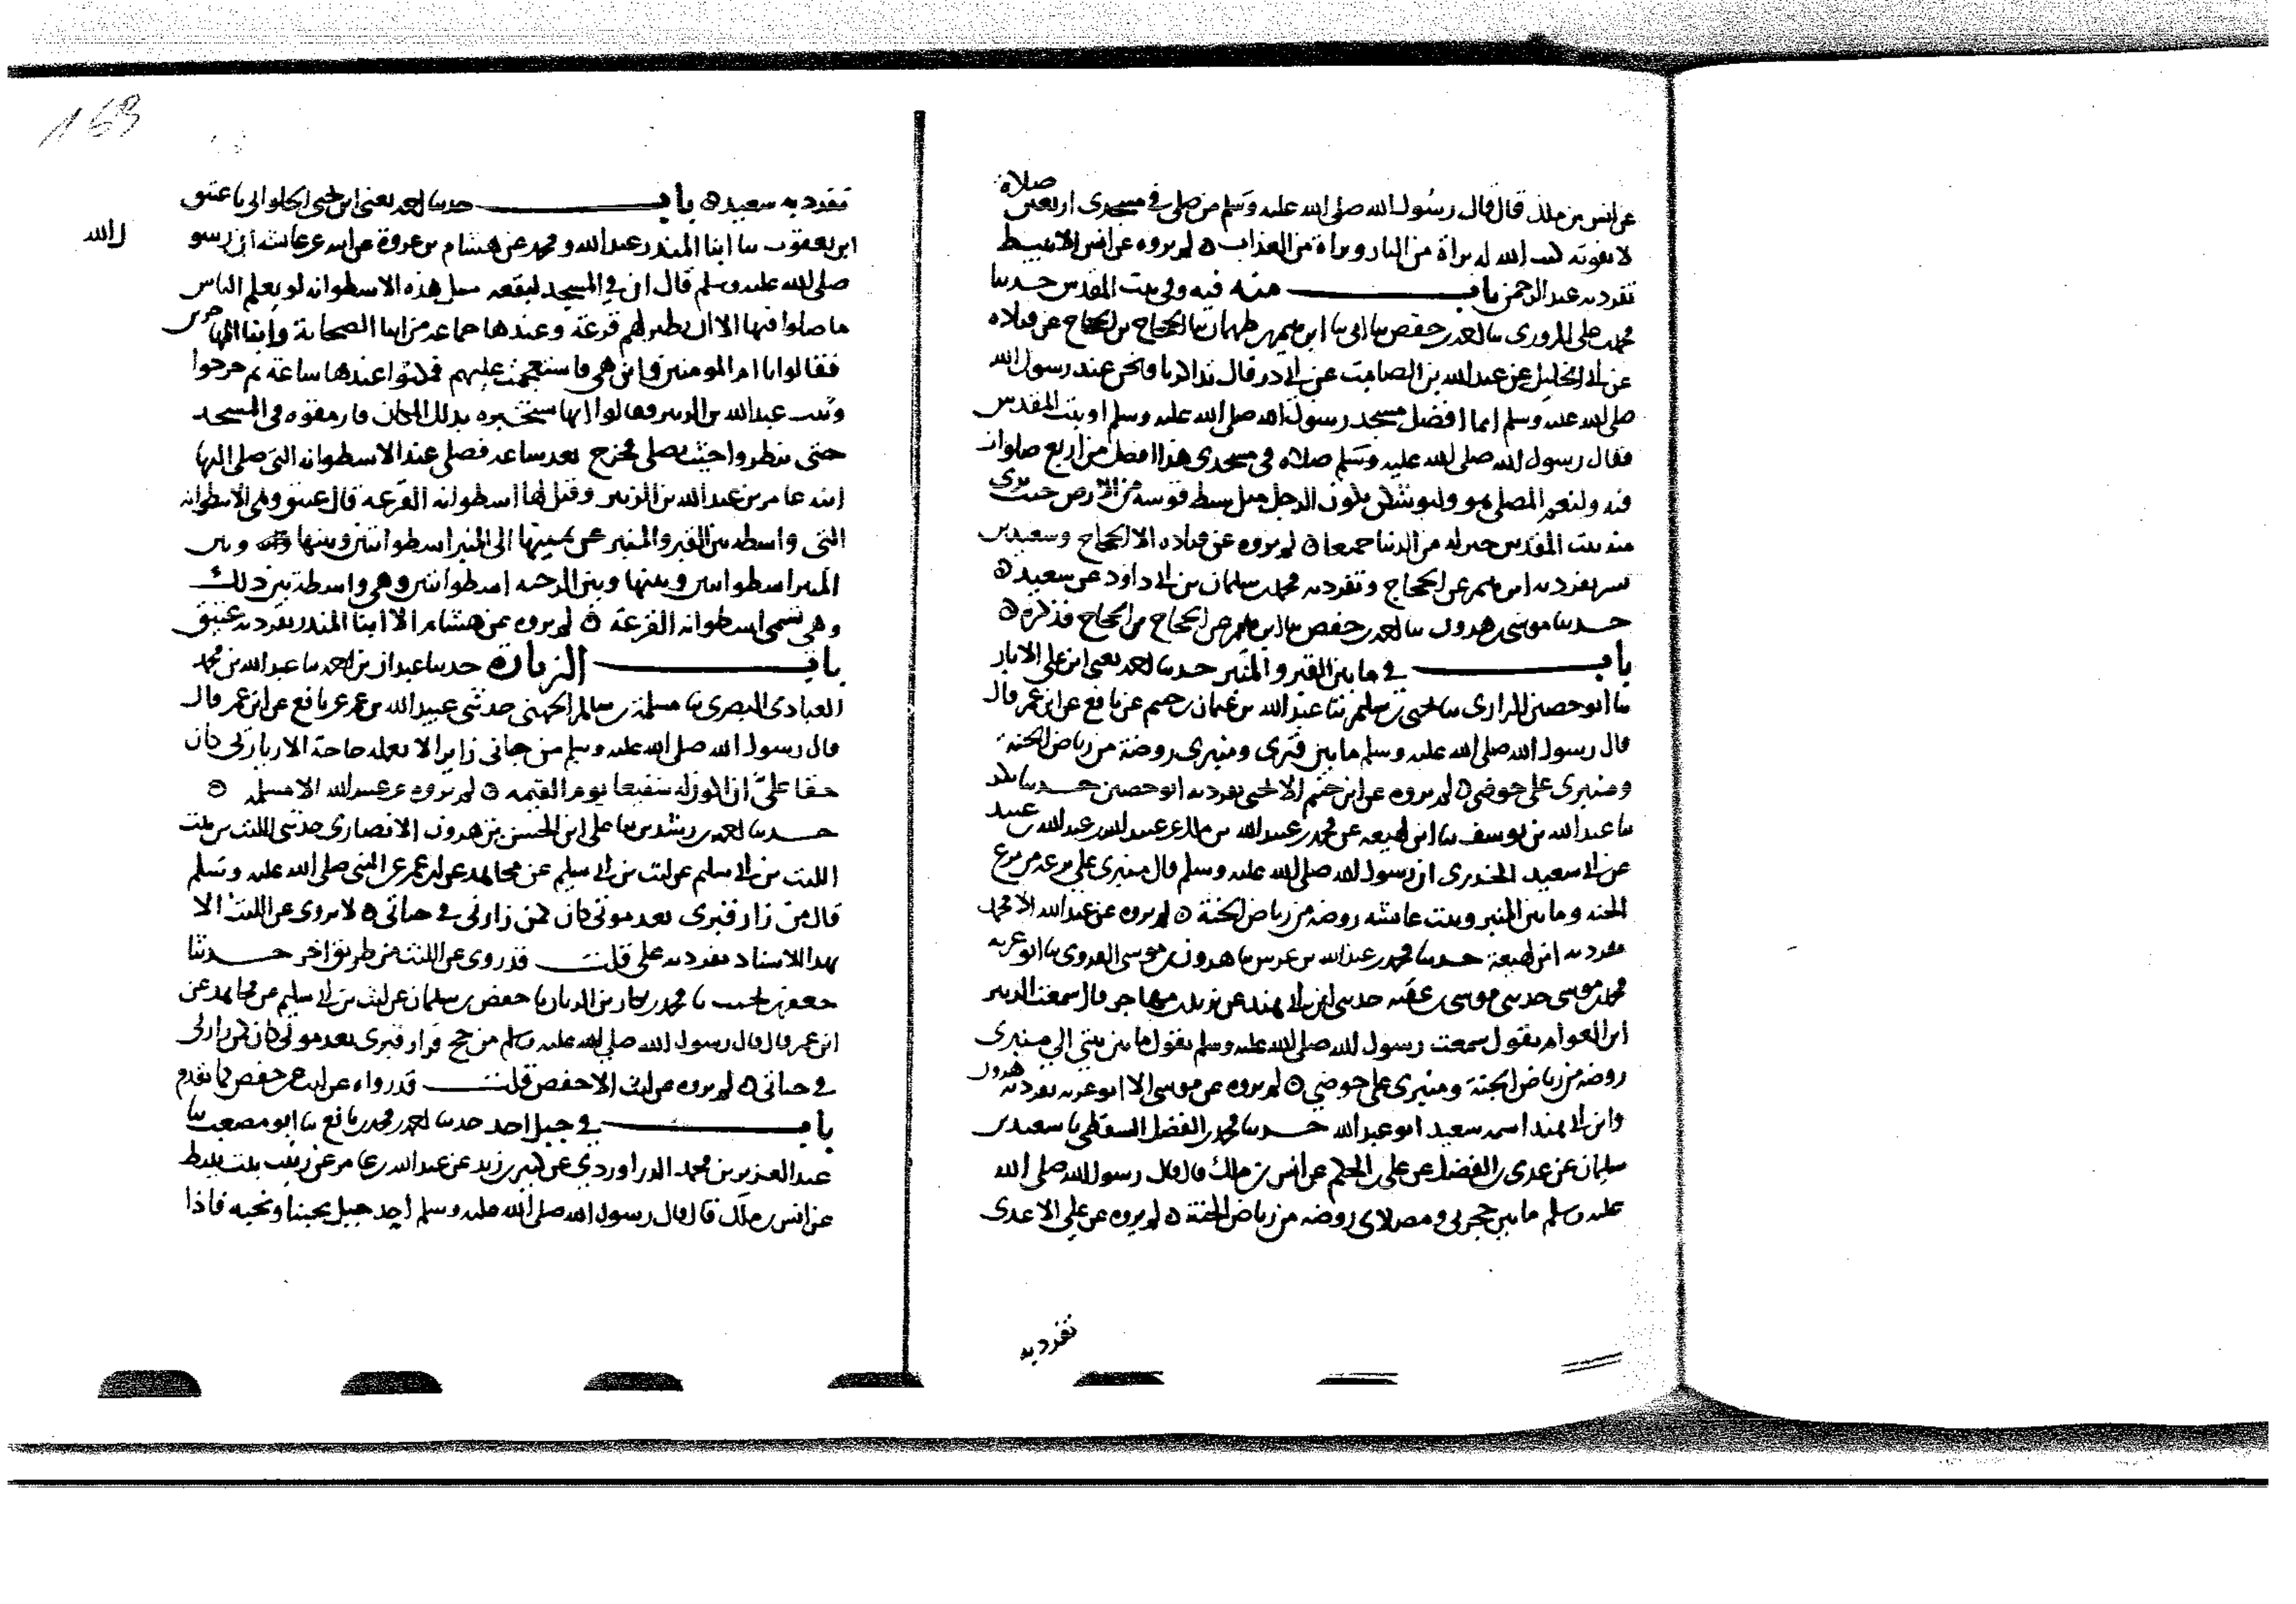 عن انس بن ملك قال قال رسول الله صلى الله عليه وسلم من صلى في مسجدى اربعين صلاة
لا تفوته كتب الله له براة من النار وبراة من العذاب ه لم يروه عن انس الا نبيط
تفرد به عبد الرحمن باب منه فيه وفي بيت المقدس حدثنا
محمد بن على المروزى ثنا احمد بن حفص ثنا ابى ثنا ابرهيم بن طهمان ثنا الحجاج بن الحجاج عن قتاده
عن ابى الخليل عن عبد الله بن الصامت عن ابى ذر قال تذاكرنا ونحن عند رسول الله
صلى الله عليه وسلم ايما افضل مسجد رسول الله صلى الله عليه وسلم او بيت المقدس
فقال رسول الله صلى الله عليه وسلم صلاه في مسجدى هذا افضل من اربع صلوات
فيه ولنعم المصلى هو وليوشكن يكون الرجل مثل بسط قوسه من الارض حيث يرى
منه بيت المقدس خير له من الدنيا جميعا ه لم يروه عن قتاده الا الحجاج وسعيد بن
بشير تفرد به ابرهيم عن الحجاج وتفرد به محمد بن سليمان بن ابى داود عن سعيد ه
حدثنا موسى بن هرون ثنا احمد بن حفص ثنا ابرهيم عن الحجاج بن الحجاج فذكره ه
باب في ما بين القبر والمنبر حدثنا احمد يعنى ابن على الابار
ثنا ابو حصين الرازى ثنا يحيى بن سليم ثنا عبد الله بن عثمان بن خثيم عن نافع عن ابن عمر قال
قال رسول الله صلى الله عليه وسلم ما بين قبرى ومنبرى روضة من رياض الجنة
ومنبرى على حوضى ه لم يروه عن ابن خثيم الا يحيى تفرد به ابو حصين حدثنا بكر
ثنا عبد الله بن يوسف ثنا ابن لهيعه عن محمد بن عبد الله بن مالك عن عبيد الله بن عبد الله بن عبيد
عن ابى سعيد الخدرى ان رسول الله صلى الله عليه وسلم قال منبرى على ترعه من ترع
الجنه وما بين المنبر وبيت عائشه روضه من رياض الجنة ه لم يروه عن عبد الله الا محمد
تفرد به ابن لهيعة حدثنا محمد بن عبد الله بن عرس ثنا هرون بن موسى الفروى ثنا ابو غزيه
محمد بن موسى حدثنى موسى بن عقبه حدثنى ابن ابى هند عن زيد بن مهاجر قال سمعت الزبير
ابن العوام يقول سمعت رسول الله صلى الله عليه وسلم يقول ما بين بيتى الى منبرى
روضه من رياض الجنة ومنبرى على حوضى ه لم يروه عن موسى الا ابو غزيه تفرد به هرون
وابن ابى هند اسمه سعيد ابو عبد الله حدثنا محمد بن الفضل السقطى ثنا سعيد بن
سليمان عن عدى بن الفضل عن على بن الحكم عن انس بن ملك قال قال رسول الله صلى الله
عليه وسلم ما بين حجرتى ومصلاى روضه من رياض الجنة ه لم يروه عن على الا عدى
تفرد به
تفرد به سعيد ه باب حدثنا احمد يعنى ابن يحيى الحلوانى ثنا عتيق
ابن يعقوب ثنا ابنا المنذر عبد الله ومحمد عن هشام بن عروة عن ابيه عن عائشه ان رسو
ل الله
صلى الله عليه وسلم قال ان في المسجد لبقعه قبل هذه الاسطوانه لو يعلم الناس
ما صلوا فيها الا ان يطير لهم قرعة وعندها جماعه من ابنا الصحابة وابنا المهاجرين
فقالوا يا ام المومنين واين هى فاستعجمت عليهم فمكثوا عندها ساعة ثم خرجوا
وثبت عبد الله بن الزبير فقالوا انها ستخبره بذلك المكان فارمقوه في المسجد
حتى ننظروا حيث يصلى فخرج بعد ساعه فصلى عند الاسطوانه التى صلى اليها
ابنه عامر بن عبد الله بن الزبير وقيل لها اسطوانه القرعه قال عتيق وهى الاسطوانه
التى واسطه بين القبر والمنبر عن يمينها الى المنبر اسطوانتين وبينها وبين
المنبر اسطوانتين وبينها وبين الرحبه اسطوانتين وهى واسطة بين ذلك
وهى تسمى اسطوانه القرعة ه لم يروه عن هشام الا ابنا المنذر تفرد به عتيق
باب الزيارة حدثنا عبدان بن احمد ثنا عبد الله بن محمد
العبادى البصرى ثنا مسلمة بن سالم الجهنى حدثنى عبيد الله بن عمر عن نافع عن ابن عمر قال
قال رسول الله صلى الله عليه وسلم من جانى زايرا لا تعمله حاجة الا زيارتى كان
حقا على ان اكون له شفيعا يوم القيمه ه لم يروه عن عبيد الله الا مسلمه ه
حدثنا احمد بن رشدين ثنا على ابن الحسن بن هرون الانصارى حدثنى الليث بن بنت
الليث بن ابى سليم عن ليث بن ابى سليم عن مجاهد عن ابن عمر عن النبى صلى الله عليه وسلم
قال من زار قبرى بعد موتى كان كمن زارنى في حياتى ه لا يروى عن الليث الا
بهذا الاسناد تفرد به على قلت قد روى عن الليث من طريق اخر حدثنا
جعفر بن بجير ثنا محمد بن بكار بن الريان ثنا حفص بن سليمان عن ليث بن ابى سليم عن مجاهد عن
ابن عمر قال قال رسول الله صلى الله عليه وسلم من حج فزار قبرى بعد موتى كان كمن زارنى
في حياتى ه لم يروه عن ليث الا حفص قلت قد رواه عن ليث غير حفص كما تقدم
باب في جبل احد حدثنا احمد بن محمد بن نافع ثنا ابو مصعب ثنا
عبد العزيز بن محمد الدراوردى عن كثير بن زيد عن عبد الله بن عامر عن زينب بنت نبيط
عن انس بن ملك قال قال رسول الله صلى الله عليه وسلم احد جبل يحبنا ونحبه فاذا
163